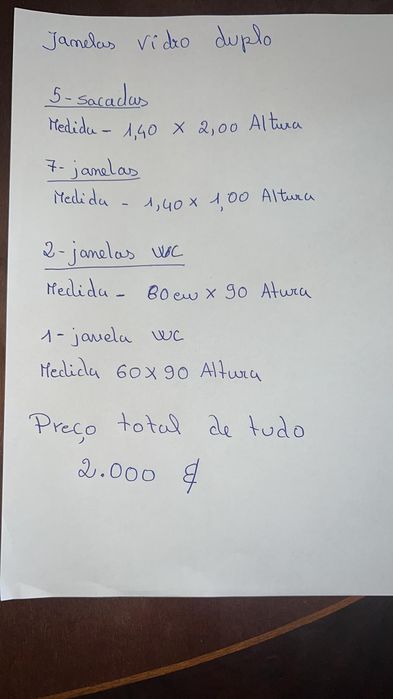 Janelas vidro duplo
5-sacadas
Medida - 1,40 x 2,00 Altura
7-janelas
Medida - 1,40 x 1,00 Altura
2-janelas WC
Medida - 80cm x 90 Atura
1-janela WC
Medida 60x90 Altura
Preço total de tudo
2.000 €